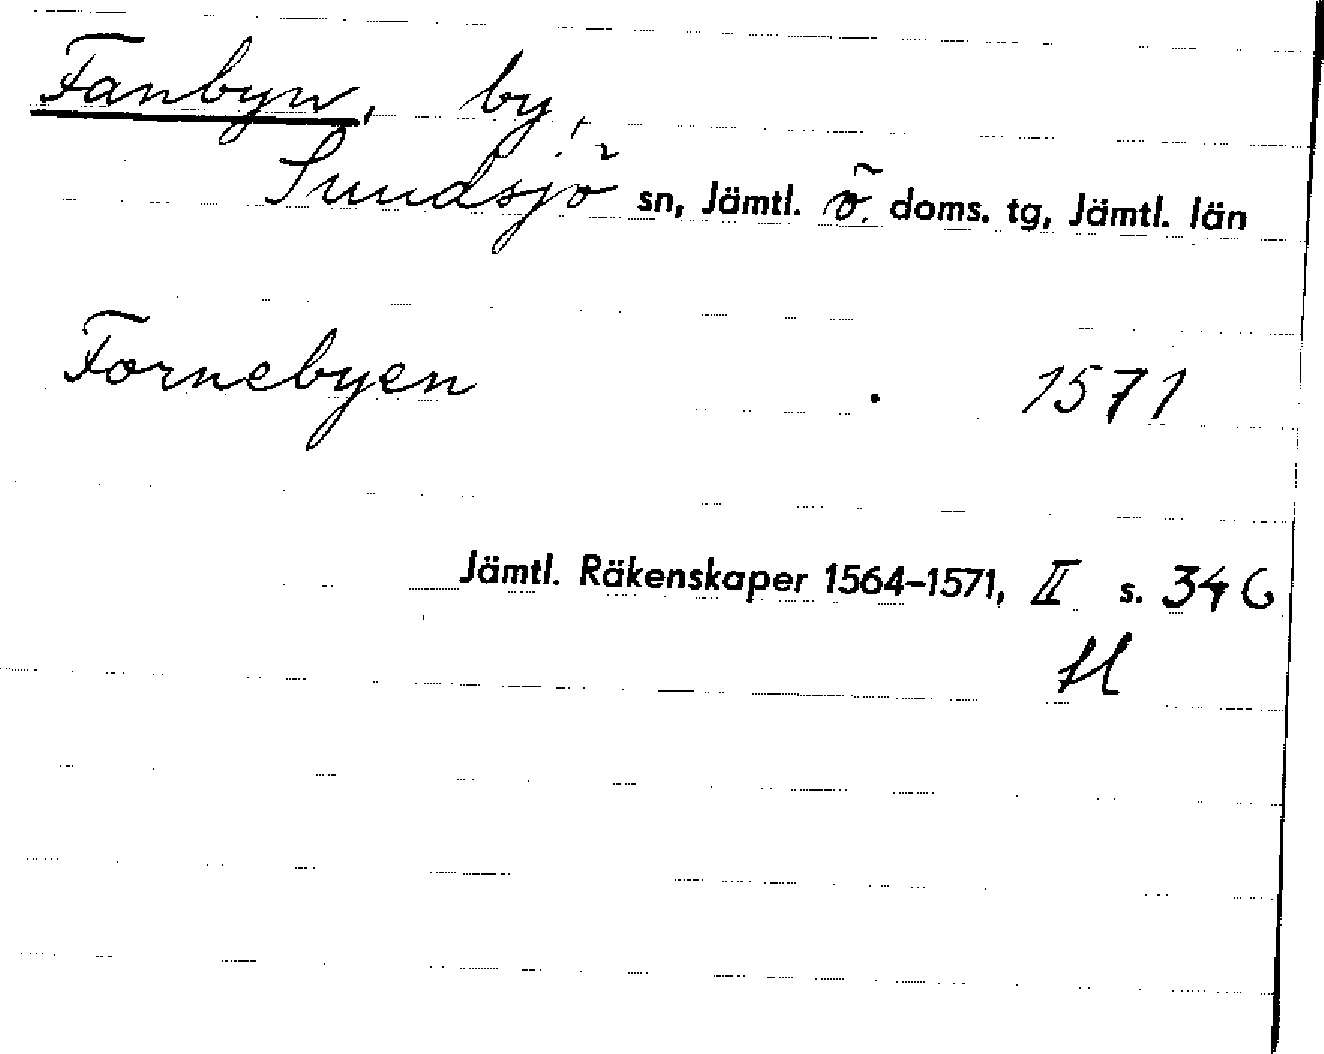 Fanbyn, by,
Sundsjö sn, Jämtl. ö. doms. tg, Jämtl. län
Fornebyen 1571
Jämtl. Räkenskaper 1564-1571, II s. 346
H